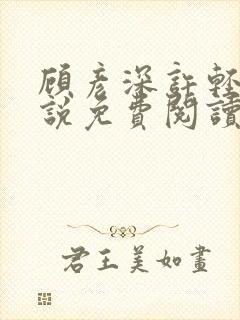 顧彥深許輕
說免費閱讀
君王美如畫